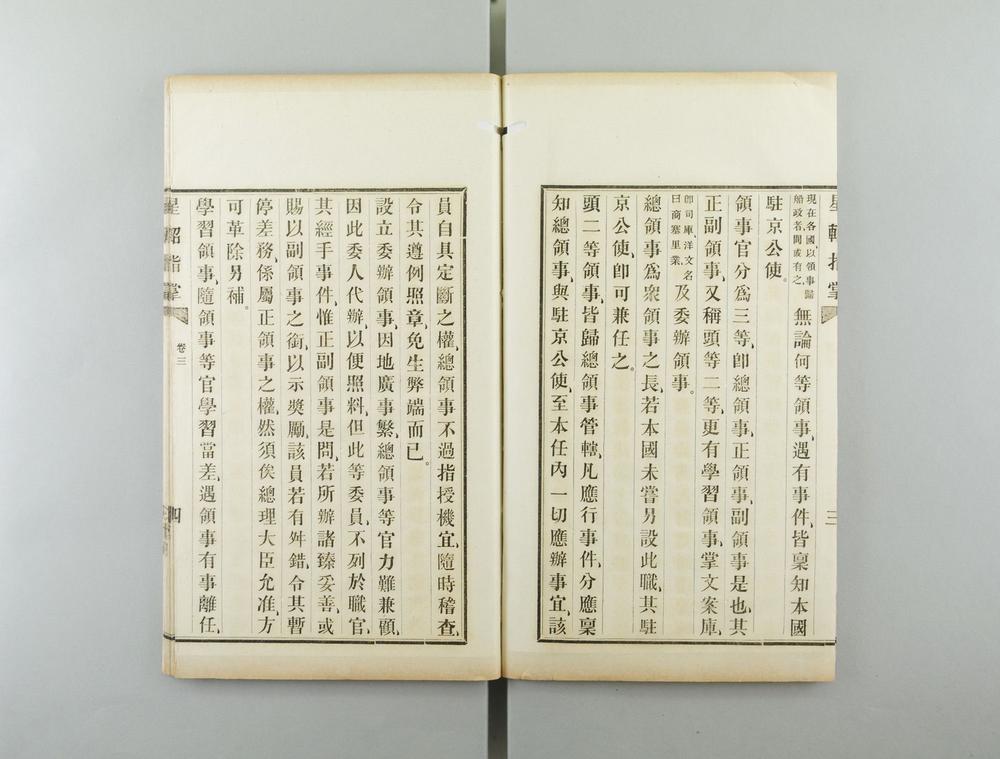 星軺指掌
三
現在各國、以領事歸
船政者、間或有之、
無論何等領事、遇有事件、皆稟知本國
駐京公使。
領事官分爲三等、卽總領事、正領事、副領事是也、其
正副領事、又稱頭等二等、更有學習領事、掌文案庫、
卽司庫、洋文名
曰商塞里業、
及委辦領事。
總領事爲衆領事之長、若本國未嘗另設此職、其駐
京公使、卽可兼任之。
頭二等領事、皆歸總領事管轄、凡應行事件、分應稟
知總領事與駐京公使、至本任內一切應辦事宜、該
員自具定斷之權、總領事不過指授機宜、隨時稽查、
令其遵例照章、免生弊端而已。
設立委辦領事、因地廣事繁、總領事等官力難兼顧、
因此委人代辦、以便照料、但此等委員、不列於職官、
其經手事件、惟正副領事是問、若所辦諸臻妥善、或
賜以副領事之銜、以示奬勵、該員若有舛錯、令其暫
停差務、係屬正領事之權、然須俟總理大臣允准、方
可革除另補。
學習領事、隨領事等官學習當差、遇領事有事離任、
星軺指掌
卷三
四